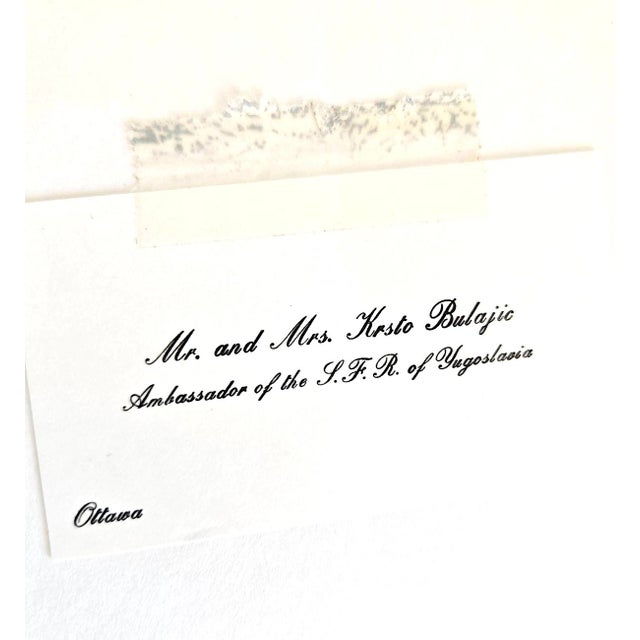 Mr. and Mrs. Krsto Bulajic
Ambassador of the S.F.R. of Yugoslavia
Ottawa